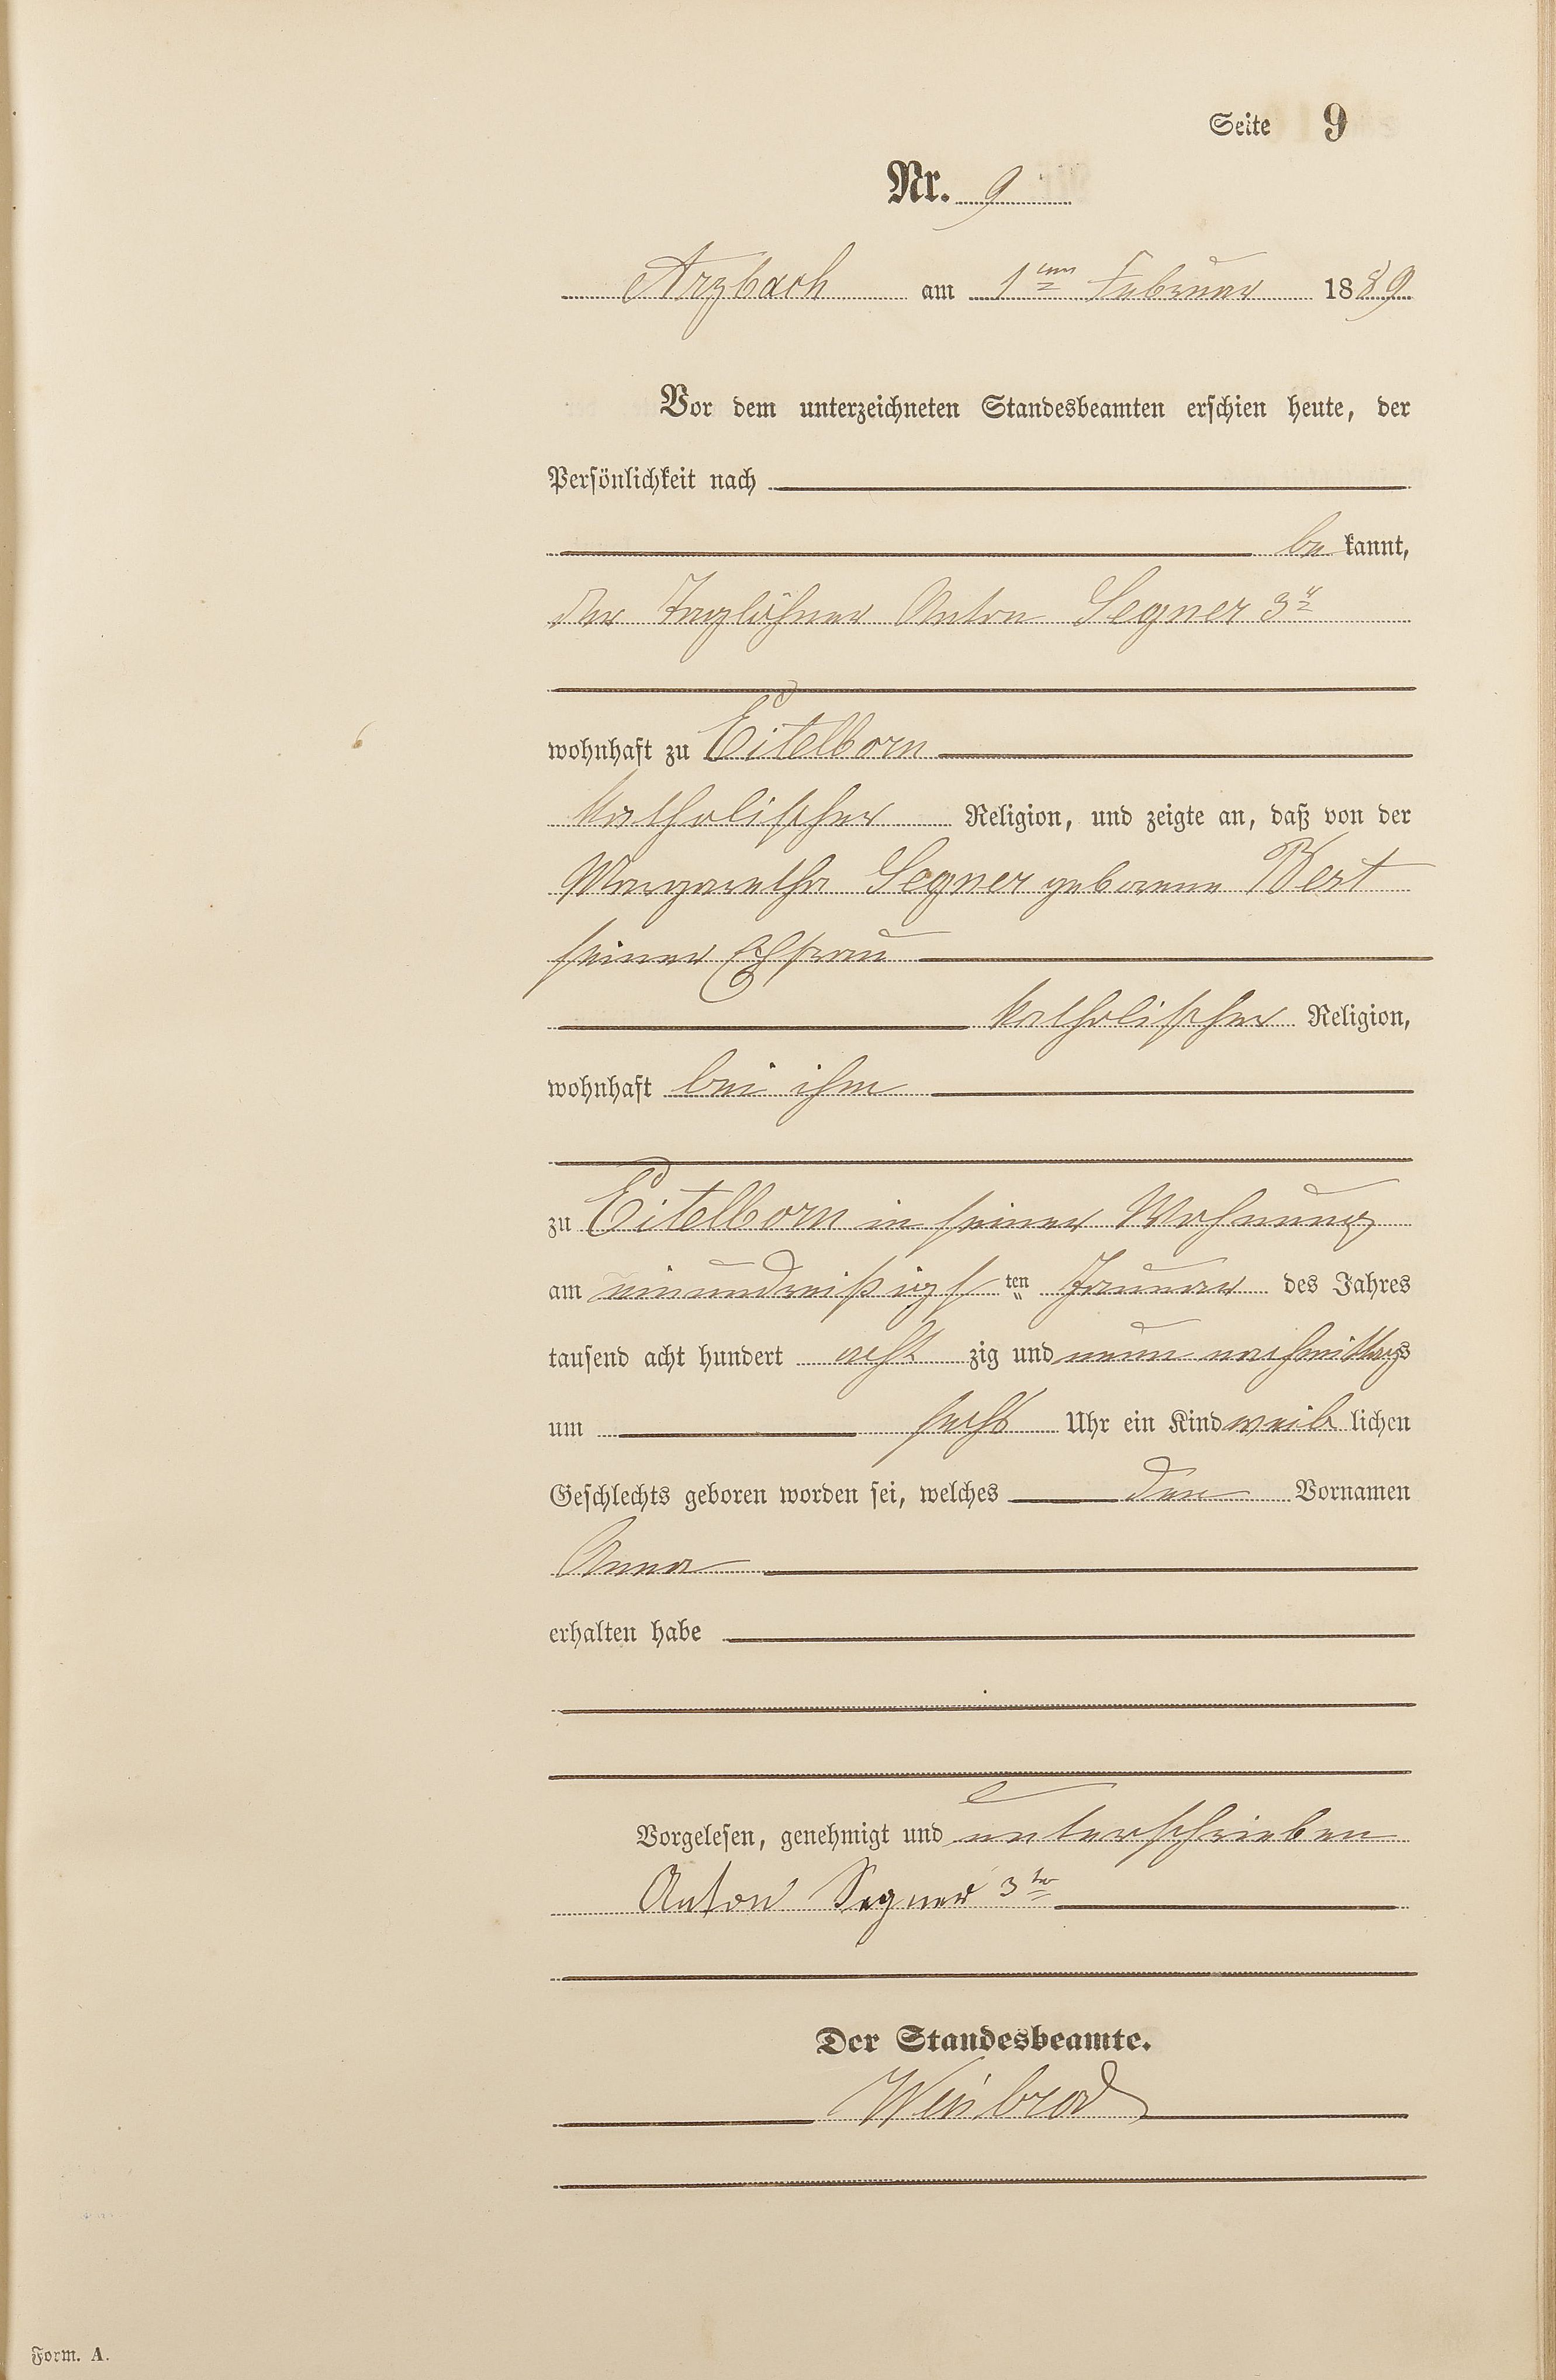 Seite 9
Nr. 9
Arzbach am 1ten Februar 1889
Vor dem unterzeichneten Standesbeamten erschien heute, der
Persönlichkeit nach
be kannt,
der Taglöhner Anton Segner 3r
wohnhaft zu Eitelborn
katholischer Religion, und zeigte an, daß von der
Margaretha Segner geborene Bert
seiner Ehefrau
katholischer Religion,
wohnhaft bei ihm
zu Eitelborn in seiner Wohnung
am einunddreißigsten Januar des Jahres
tausend acht hundert acht zig und neun nachmittags
um sechs Uhr ein Kind weiblichen
Geschlechts geboren worden sei, welches den Vornamen
Anna
erhalten habe
Vorgelesen, genehmigt und unterschrieben
Anton Segner 3ter
Der Standesbeamte.
Weisbrod
Form. A.